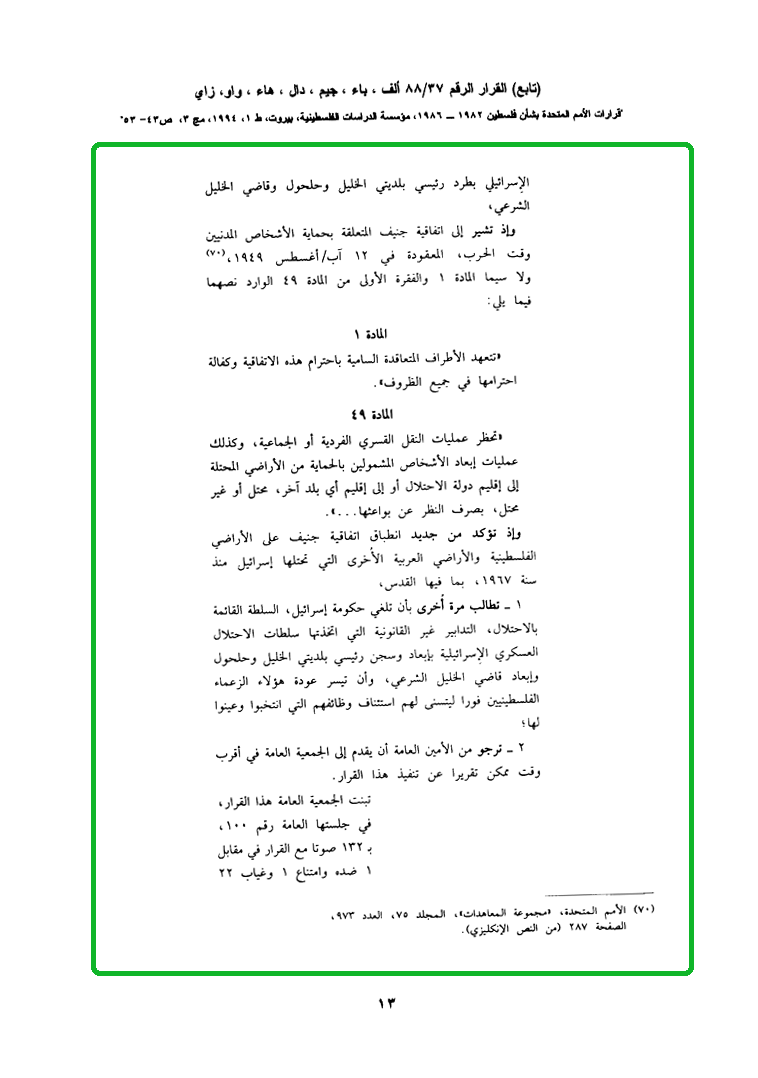 (تابع) القرار الرقم ٨٨/٣٧ ألف ، باء ، جيم ، دال ، هاء ، واو، زاي
"قرارات الأمم المتحدة بشأن فلسطين ١٩٨٢ ــ ١٩٨٦، مؤسسة الدراسات الفلسطينية، بيروت، ط ١، ١٩٩٤، مج ٣، ص٤٣- ٥٣"
الإسرائيلي بطرد رئيسي بلديتي الخليل وحلحول وقاضي الخليل
الشرعي،
وإذ تشير إلى اتفاقية جنيف المتعلقة بحماية الأشخاص المدنيين
وقت الحرب، المعقودة في ١٢ آب/أغسطس ١٩٤٩،(٧٠)
ولا سيما المادة ١ والفقرة الأولى من المادة ٤٩ الوارد نصهما
فيما يلي:
المادة ١
«تتعهد الأطراف المتعاقدة السامية باحترام هذه الاتفاقية وكفالة
احترامها في جميع الظروف».
المادة ٤٩
«تحظر عمليات النقل القسري الفردية أو الجماعية، وكذلك
عمليات إبعاد الأشخاص المشمولين بالحماية من الأراضي المحتلة
إلى إقليم دولة الاحتلال أو إلى إقليم أي بلد آخر، محتل أو غير
محتل، بصرف النظر عن بواعثها...».
وإذ تؤكد من جديد انطباق اتفاقية جنيف على الأراضي
الفلسطينية والأراضي العربية الأُخرى التي تحتلها إسرائيل منذ
سنة ١٩٦٧، بما فيها القدس،
١ ــ تطالب مرة أُخرى بأن تلغي حكومة إسرائيل، السلطة القائمة
بالاحتلال، التدابير غير القانونية التي اتخذتها سلطات الاحتلال
العسكري الإسرائيلية بإبعاد وسجن رئيسي بلديتي الخليل وحلحول
وإبعاد قاضي الخليل الشرعي، وأن تيسر عودة هؤلاء الزعماء
الفلسطينيين فورا ليتسنى لهم استئناف وظائفهم التي انتخبوا وعينوا
لها؛
٢ ــ ترجو من الأمين العامة أن يقدم إلى الجمعية العامة في أقرب
وقت ممكن تقريرا عن تنفيذ هذا القرار.
تبنت الجمعية العامة هذا القرار،
في جلستها العامة رقم ١٠٠،
بـ ١٣٢ صوتا مع القرار في مقابل
١ ضده وامتناع ١ وغياب ٢٢
(٧٠) الأمم المتحدة، «مجموعة المعاهدات»، المجلد ٧٥، العدد ٩٧٣،
الصفحة ٢٨٧ (من النص الإنكليزي).
١٣